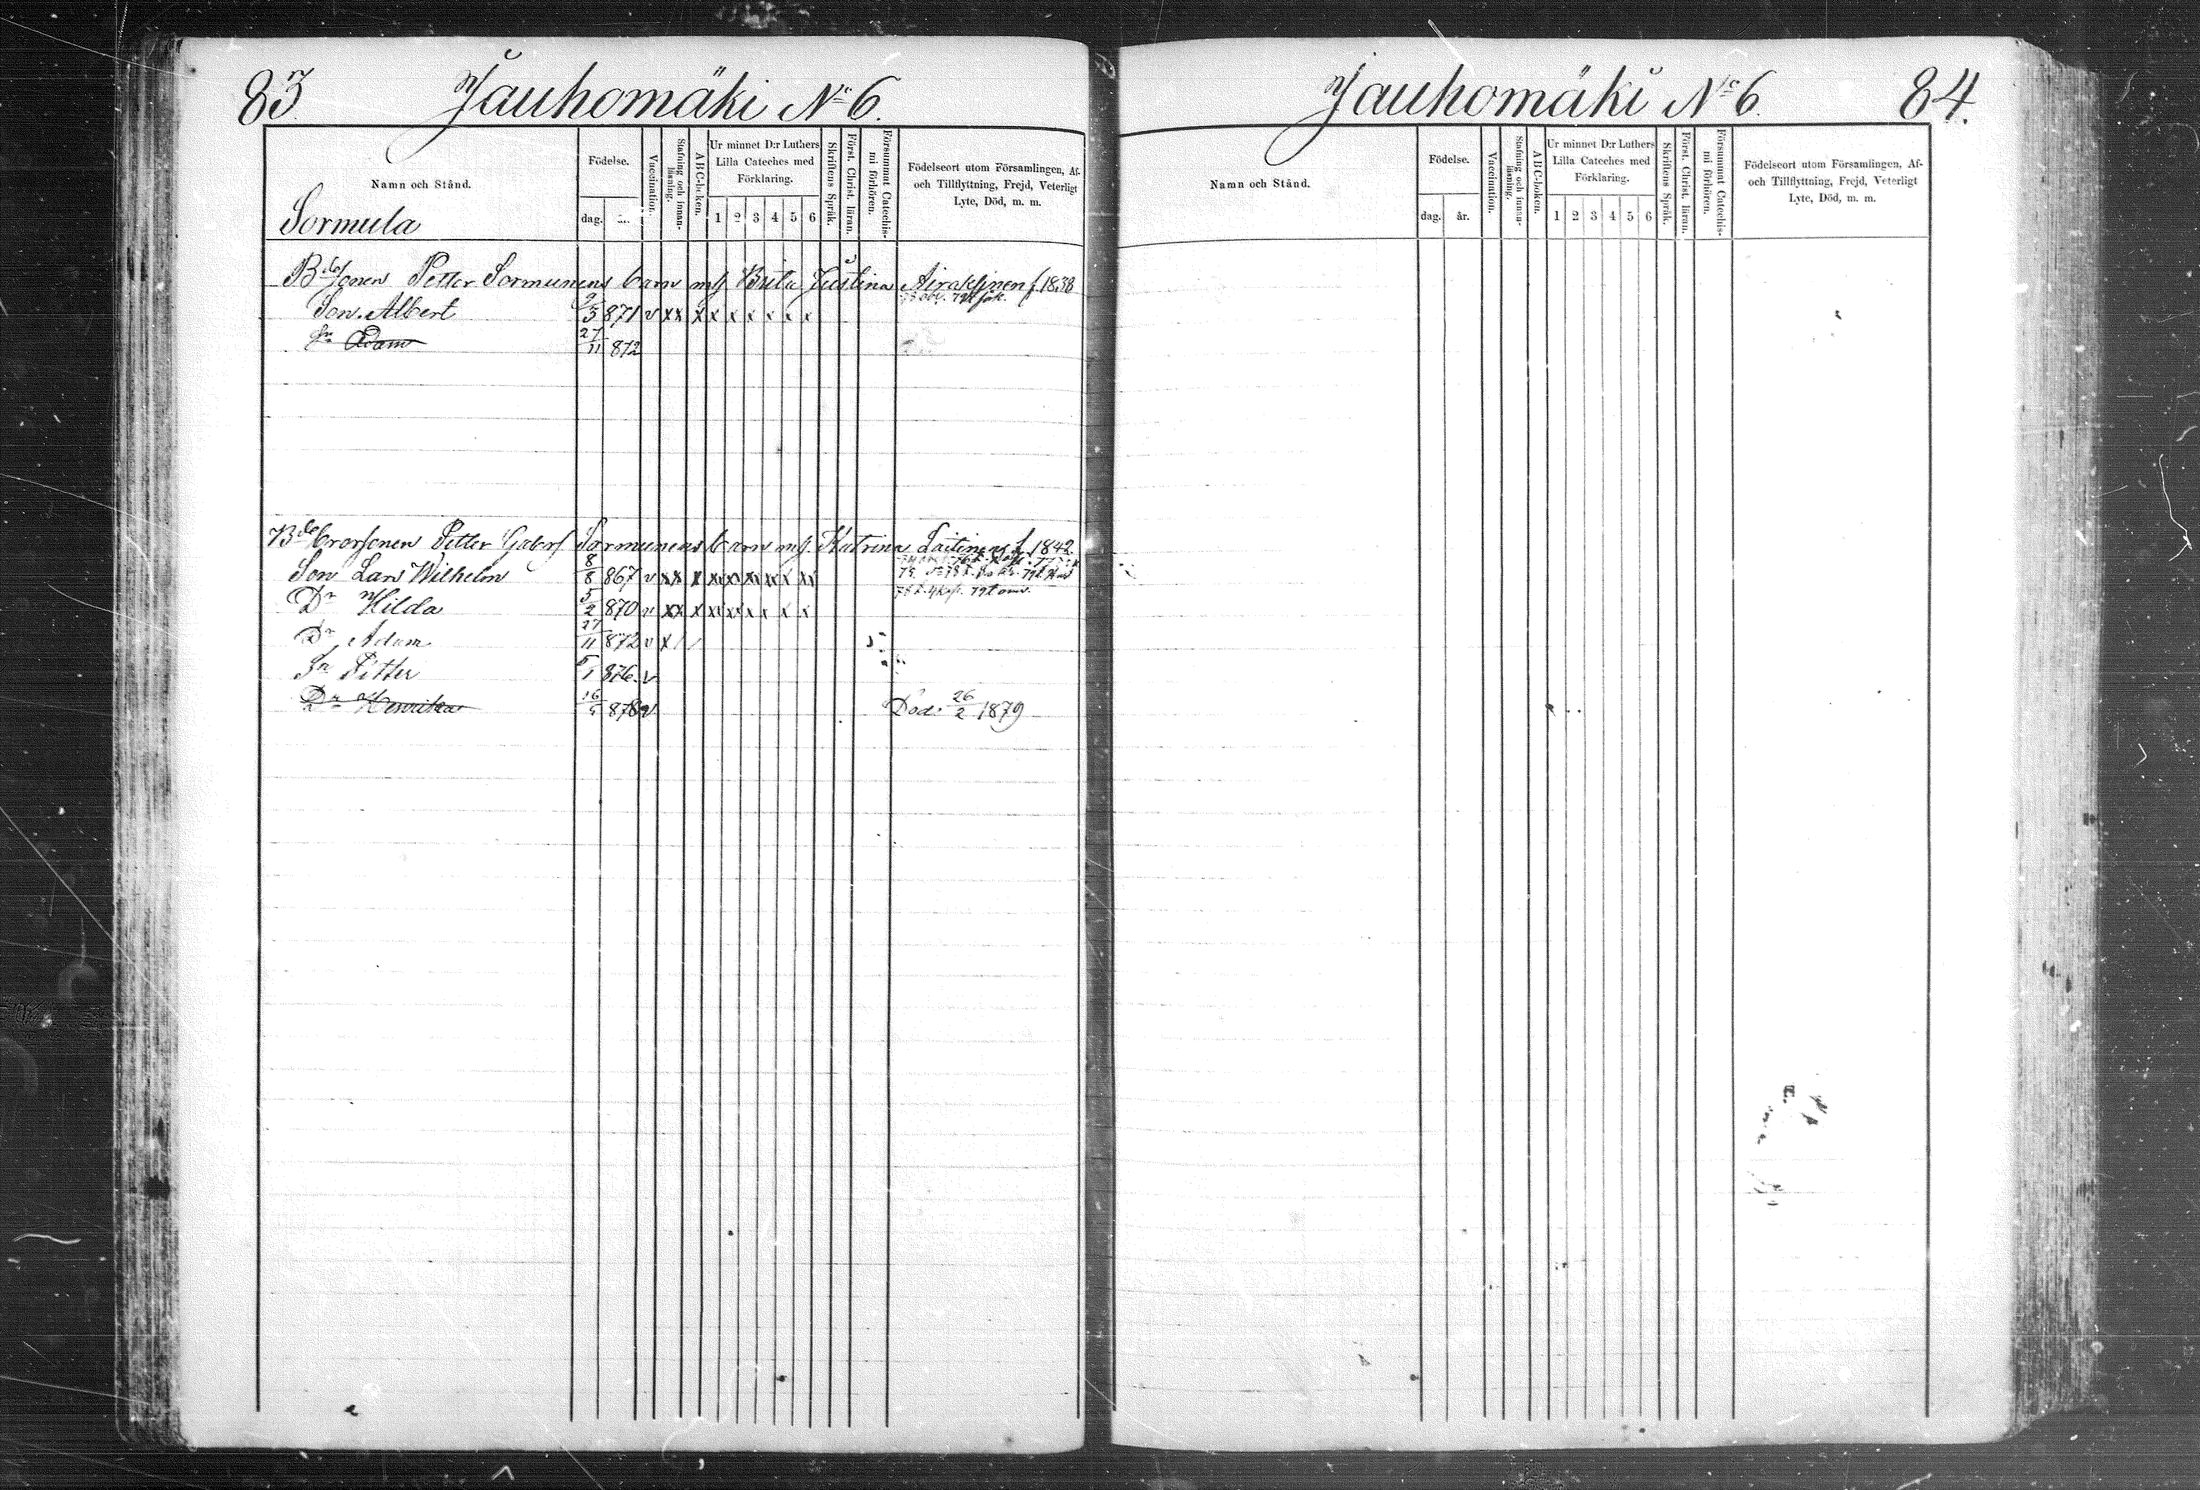 83. Jauhomäki No 6.
Namn och Stånd.
Födelse.
dag.
Vaccination.
Stafning och innan-
läsning.
A B C-boken.
Ur minnet D:r Luthers
Lilla Cateches med
Förklaring.
1 2 3 4 5 6
Skriftens Språk.
Först. Christ. läran.
Försummat Catechis-
mi förhören.
Födelseort utom Församlingen, Af-
och Tillflyttning, Frejd, Veterligt
Lyte, Död, m. m.
Sormula
Petter Sormunens barn m Brita Justina Airaksinen f. 1838
Son Albert 9/3 871 v xx x x x x x x x
Sn Adam 27/11 872
Petter Sormunens barn m Katrina Laitinen f. 1842
Son Lars Wilhelm 8/8 867 v xx x xx xx xx xx x xx
Dr Hilda 5/2 870 v xx x xx xx x x x x
Dr Adam 27/11 872 v x / /
Sn Pitter 5/1 876. v
Dr Henrika 16/5 878 v Död. 26/2 1879
Jauhomäki No 6. 84.
Namn och Stånd.
Födelse.
dag. år.
Vaccination.
Stafning och innan-
läsning.
A B C-boken.
Ur minnet D:r Luthers
Lilla Cateches med
Förklaring.
1 2 3 4 5 6
Skriftens Språk.
Först. Christ. läran.
Försummat Catechis-
mi förhören.
Födelseort utom Församlingen, Af-
och Tillflyttning, Frejd, Veterligt
Lyte, Död, m. m.